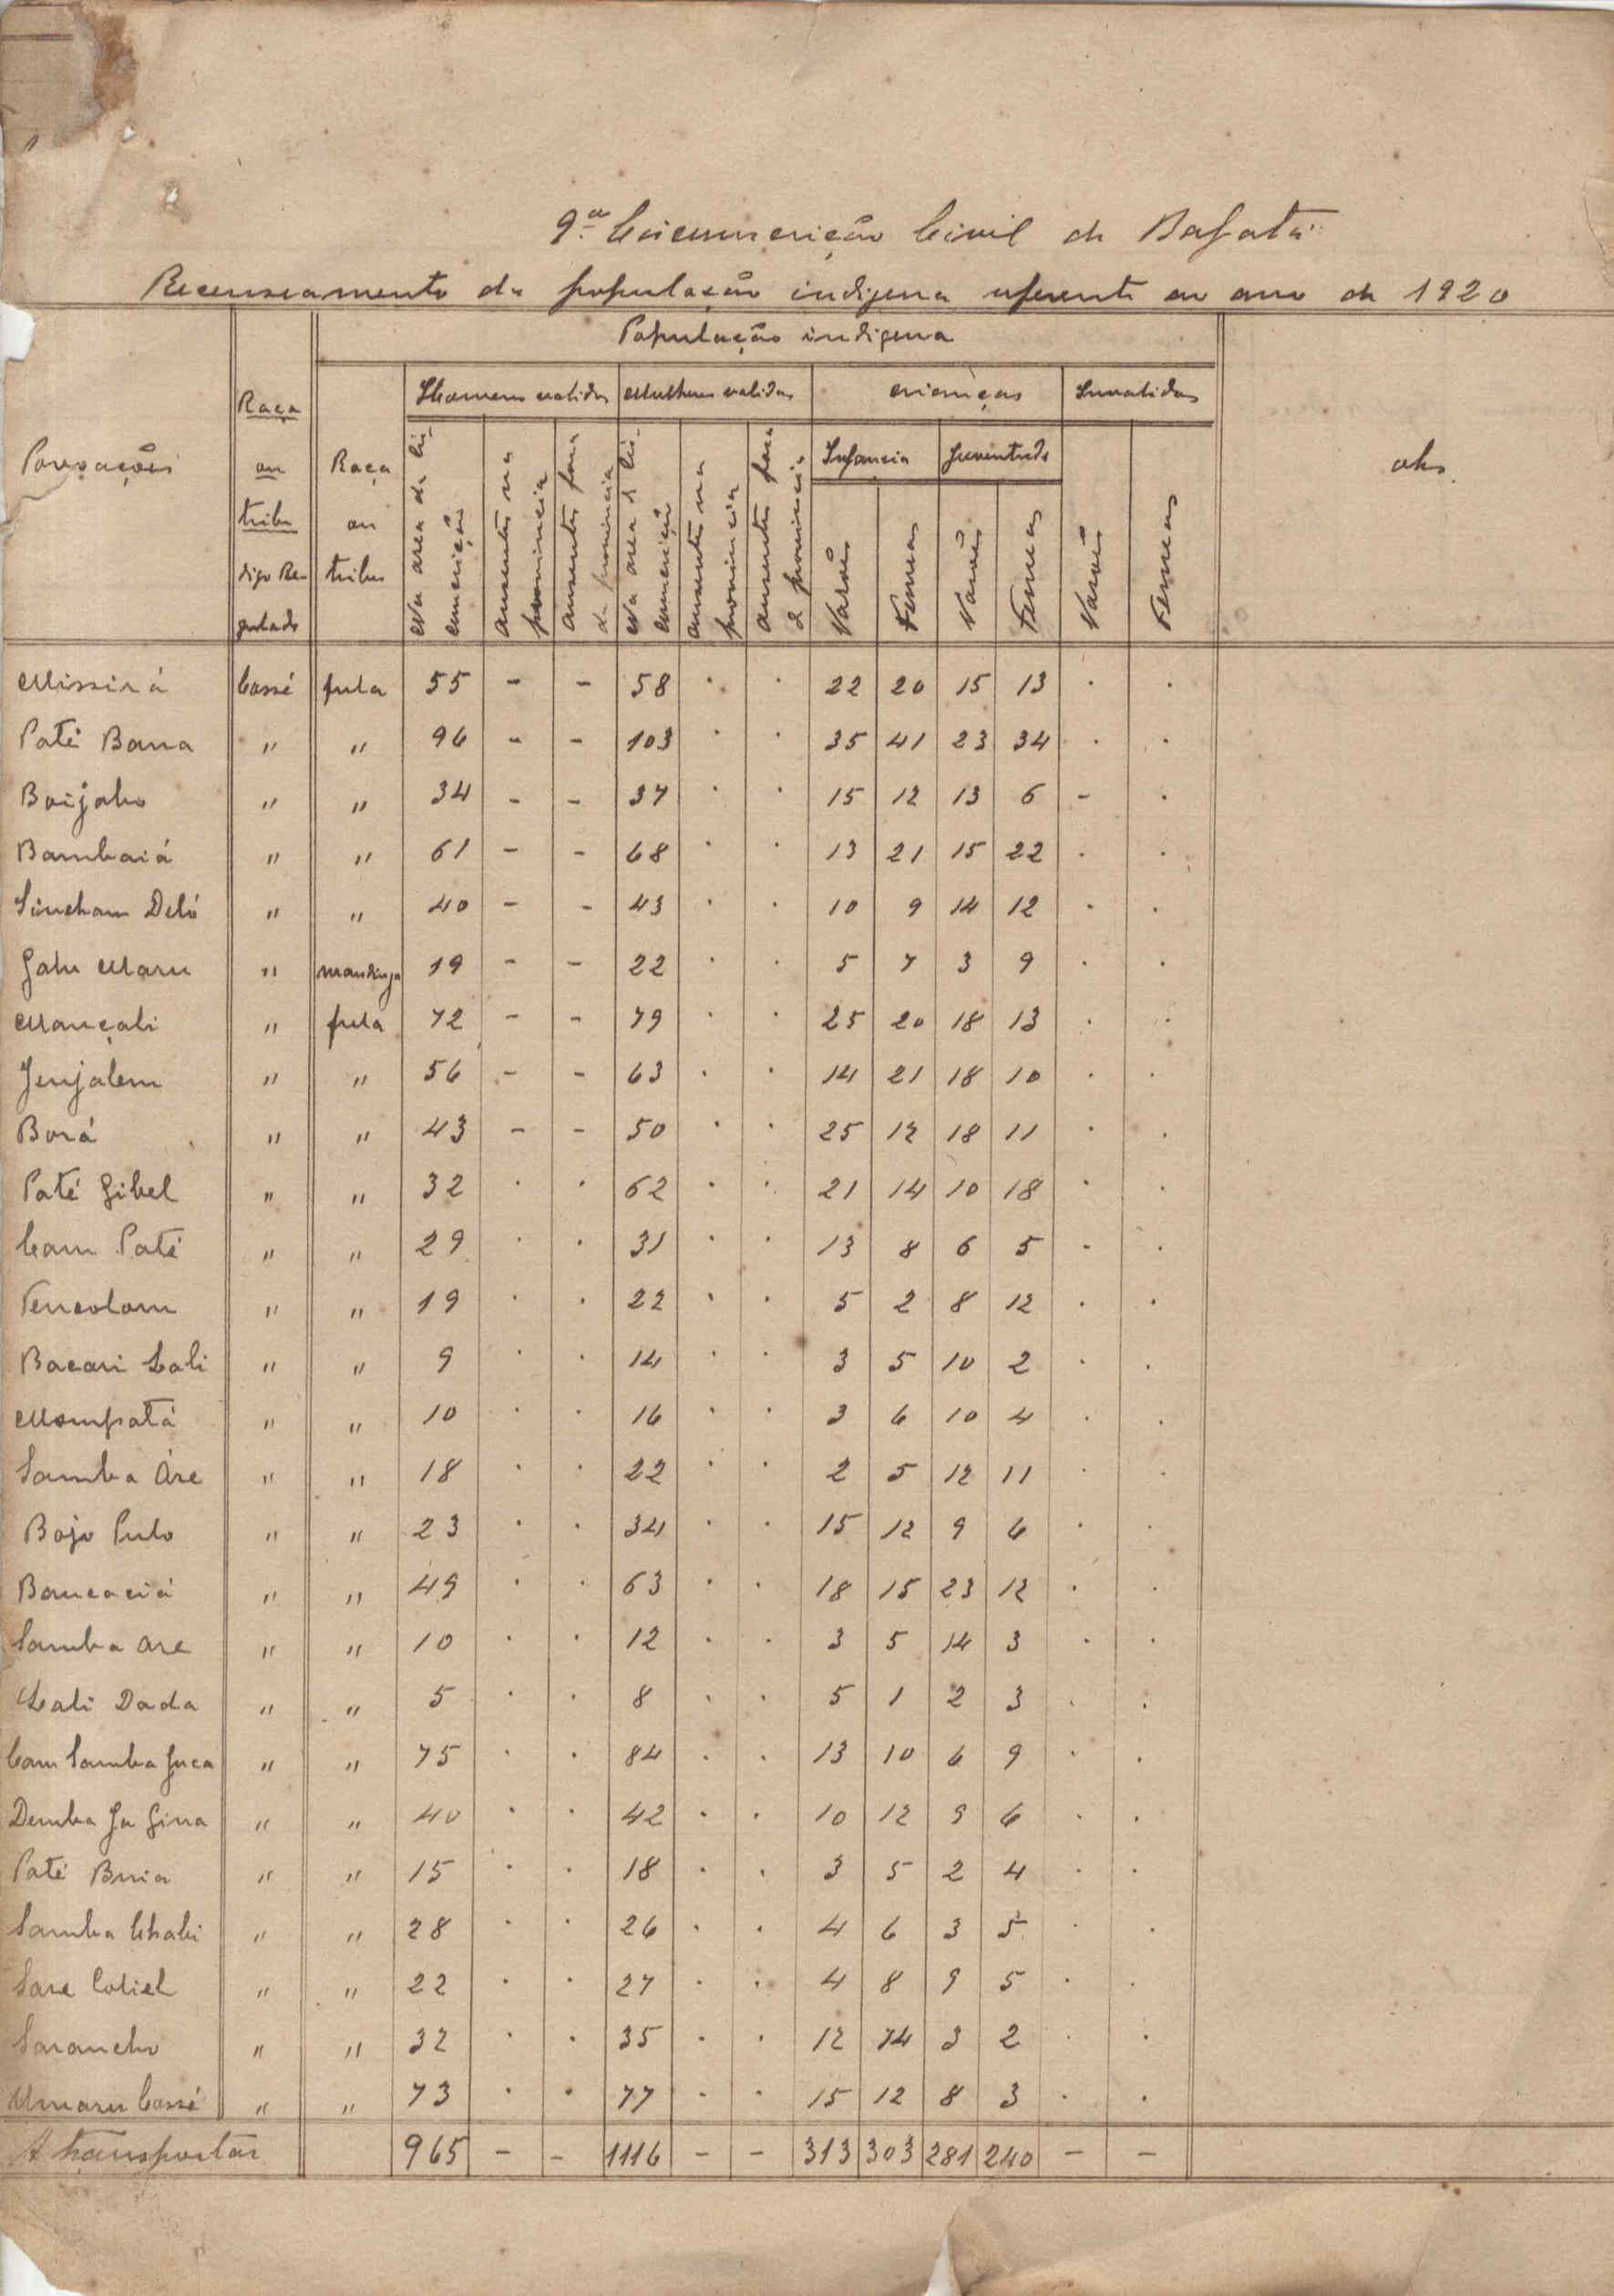 9.ª Circunscrição Civil de Bafatá
Recenseamento da população indigena referente ao ano de 1920
População indigena
Povoações
Raça ou tribu digo Regulado
Raça ou tribu
Homens validos
Mulheres validas
crianças
Invalidos
obs.
Na area da circunscrição
ausentes na provincia
ausentes fora da provincia
Na area da circunscrição
ausentes na provincia
ausentes fora da provincia
Infancia
Juventude
Varões
Femeas
Varões
Femeas
Varões
Femeas
Missirá Cossé fula 55 - - 58 . . 22 20 15 13 . .
Paté Bana " " 96 - - 103 . . 35 41 23 34 . .
Boijabo " " 34 - - 37 . . 15 12 13 6 - .
Bambaiá " " 61 - - 68 . . 13 21 15 22 . .
Sincham Deló " " 40 - - 43 . . 10 9 14 12 . .
Gabu Maru " mandinga 19 - - 22 . . 5 7 3 9 . .
Mançali " fula 72 - - 79 . . 25 20 18 13 . .
Jenjalem " " 56 - - 63 . . 14 21 18 10 . .
Borá " " 43 - - 50 . . 25 12 18 11 . .
Paté Gibel " " 32 . . 62 . . 21 14 10 18 . .
Cam Paté " " 29 . . 31 . . 13 8 6 5 . .
Tencolam " " 19 . . 22 . . 5 2 8 12 . .
Bacari Lali " " 9 . . 14 . . 3 5 10 2 . .
Mompatá " " 10 . . 16 . . 3 6 10 4 . .
Samba Are " " 18 . . 22 . . 2 5 12 11 . .
Bojo Pulo " " 23 . . 34 . . 15 12 9 6 . .
Bancaciá " " 49 . . 63 . . 18 15 23 12 . .
Samba are " " 10 . . 12 . . 3 5 14 3 . .
Lali Dada " " 5 . . 8 . . 5 1 2 3 . .
Cam Samba Juca " " 75 . . 84 . . 13 10 6 9 . .
Demba Ja Gina " " 40 . . 42 . . 10 12 9 6 . .
Paté Buia " " 15 . . 18 . . 3 5 2 4 . .
Samba Chabi " " 28 . . 26 . . 4 6 3 5 . .
Sare Coliel " " 22 . . 27 . . 4 8 9 5 . .
Sarancho " " 32 . . 35 . . 12 14 3 2 . .
Umaru Cossé " " 73 . . 77 . . 15 12 8 3 . .
A transportar 965 - - 1116 - - 313 303 281 240 - -